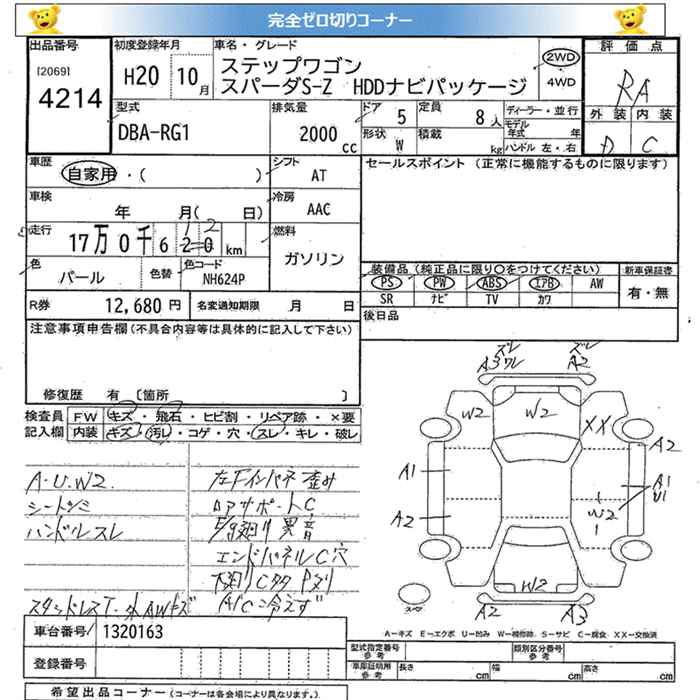 完全ゼロ切りコーナー
出品番号 初度登録年月 車名・グレード 評価点
[2069]
4214
H20 10月
ステップワゴン
スパーダS-Z HDDナビパッケージ
2WD
4WD
RA
外装 内装
D C
型式 排気量 ドア 定員 ディーラー・並行
DBA-RG1 2000cc 5 8人
形状 積載 モデル年式 年
W kg ハンドル 左・右
車歴 シフト セールスポイント (正常に機能するものに限ります)
自家用・( ) AT
車検 冷房
年 月( 日) AAC
走行 燃料
17万0千6 20 km ガソリン
1 2
色 色替 色コード
パール NH624P
装備品 (純正品に限り○をつけてください) 新車保証書
PS PW ABS エアB AW 有・無
SR ナビ TV カワ
R券 12,680円 名変通知期限 月 日
後日品
注意事項申告欄(不具合内容等は具体的に記入して下さい)
修復歴 有 〔箇所 〕
検査員 FW キズ・飛石・ヒビ割・リペア跡・×要
記入欄 内装 キズ・汚レ・コゲ・穴・スレ・キレ・破レ
A・U・W2
シートシミ
ハンドルスレ
スタッドレスT-外AWキズ
左Fインパネ歪み
コアサポートC
異音
エンドパネルC穴
A/C冷えず
ズレ
A3 ワレ
ズレ
A2
W2
W2
XX
A2
A1
A1
U1
A2
W2
W2
A2
A3
スペア
A-キズ E-エクボ U-凹み W-補修跡 S-サビ C-腐食 XX-交換済
車台番号 1320163
登録番号
型式指定番号 参考 類別区分番号 参考
車庫証明用 参考 長さ cm 幅 cm 高さ cm
希望出品コーナー (コーナーは各会場により異なります。)